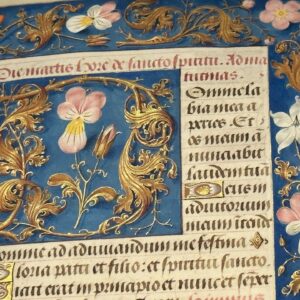 Die martis hore de sancto spiritu. Ad ma
tutinas.
Domine la
bia mea a
peries. Et
os meum a
nunciabit
laudem tuā
Deus in
adiutorium
meum inten
de Domine ad adiuvandum me festina
Gloria patri et filio: et spiritui sancto
Sicut erat in principio et nunc et semper